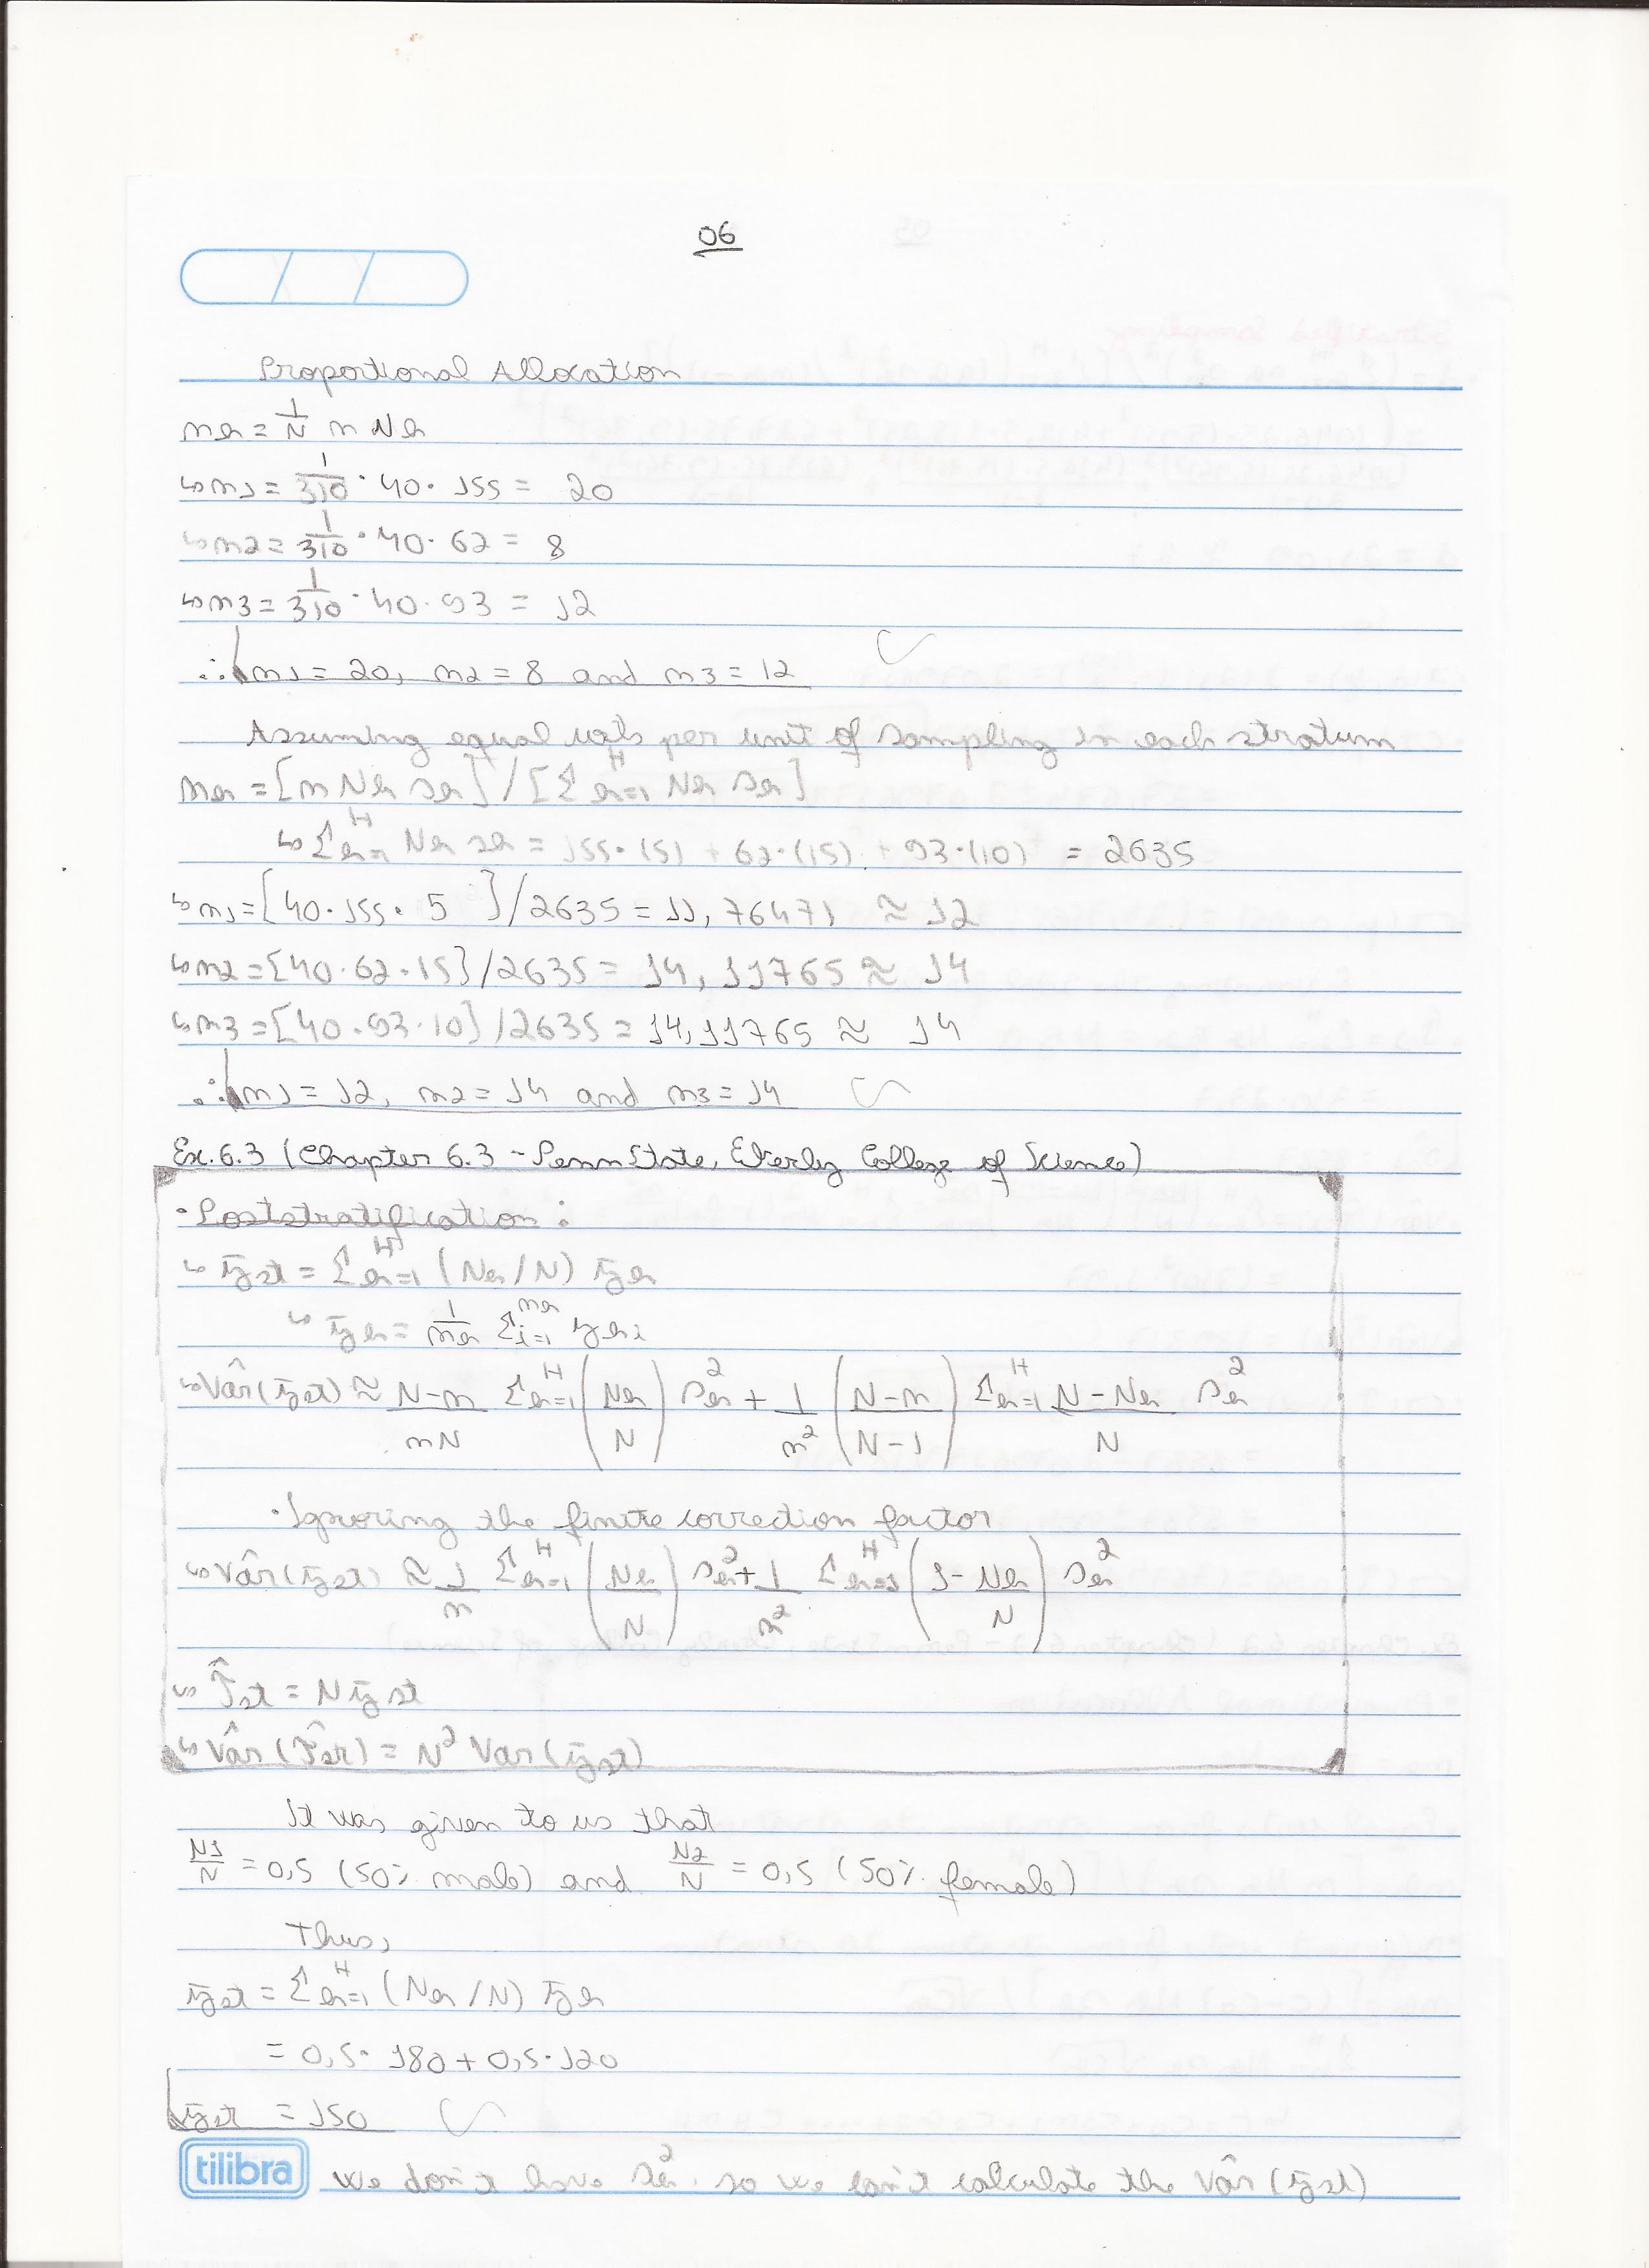 06
Proportional Allocation
nh = 1/N n Nh
↳ n1 = 1/310 · 40 · 155 = 20
↳ n2 = 1/310 · 40 · 62 = 8
↳ n3 = 1/310 · 40 · 93 = 12
∴ n1 = 20, n2 = 8 and n3 = 12
Assuming equal costs per unit of sampling in each stratum
nh = [n Nh sh] / [Σh=1^H Nh sh]
↳ Σh=1^H Nh sh = 155·(5) + 62·(15) + 93·(10) = 2635
↳ n1 = [40·155·5]/2635 = 11,76471 ≈ 12
↳ n2 = [40·62·15]/2635 = 14,11765 ≈ 14
↳ n3 = [40·93·10]/2635 = 14,11765 ≈ 14
∴ n1 = 12, n2 = 14 and n3 = 14
Ex. 6.3 (Chapter 6.3 - PennState, Eberly College of Science)
· Poststratification:
↳ ȳst = Σh=1^H (Nh/N) ȳh
↳ ȳh = 1/nh Σi=1^nh yhi
↳ Vâr(ȳst) ≈ N-n/nN Σh=1^H (Nh/N) sh² + 1/n² (N-n/N-1) Σh=1^H N-Nh/N sh²
· Ignoring the finite correction factor
↳ Vâr(ȳst) ≈ 1/n Σh=1^H (Nh/N) sh² + 1/n² Σh=1^H (1 - Nh/N) sh²
↳ T̂st = Nȳst
↳ Vâr(T̂st) = N² Var(ȳst)
It was given to us that
N1/N = 0,5 (50% male) and N2/N = 0,5 (50% female)
Thus,
ȳst = Σh=1^H (Nh/N) ȳh
= 0,5·180 + 0,5·120
ȳst = 150
tilibra
we don't have sh², so we can't calculate the Vâr(ȳst)